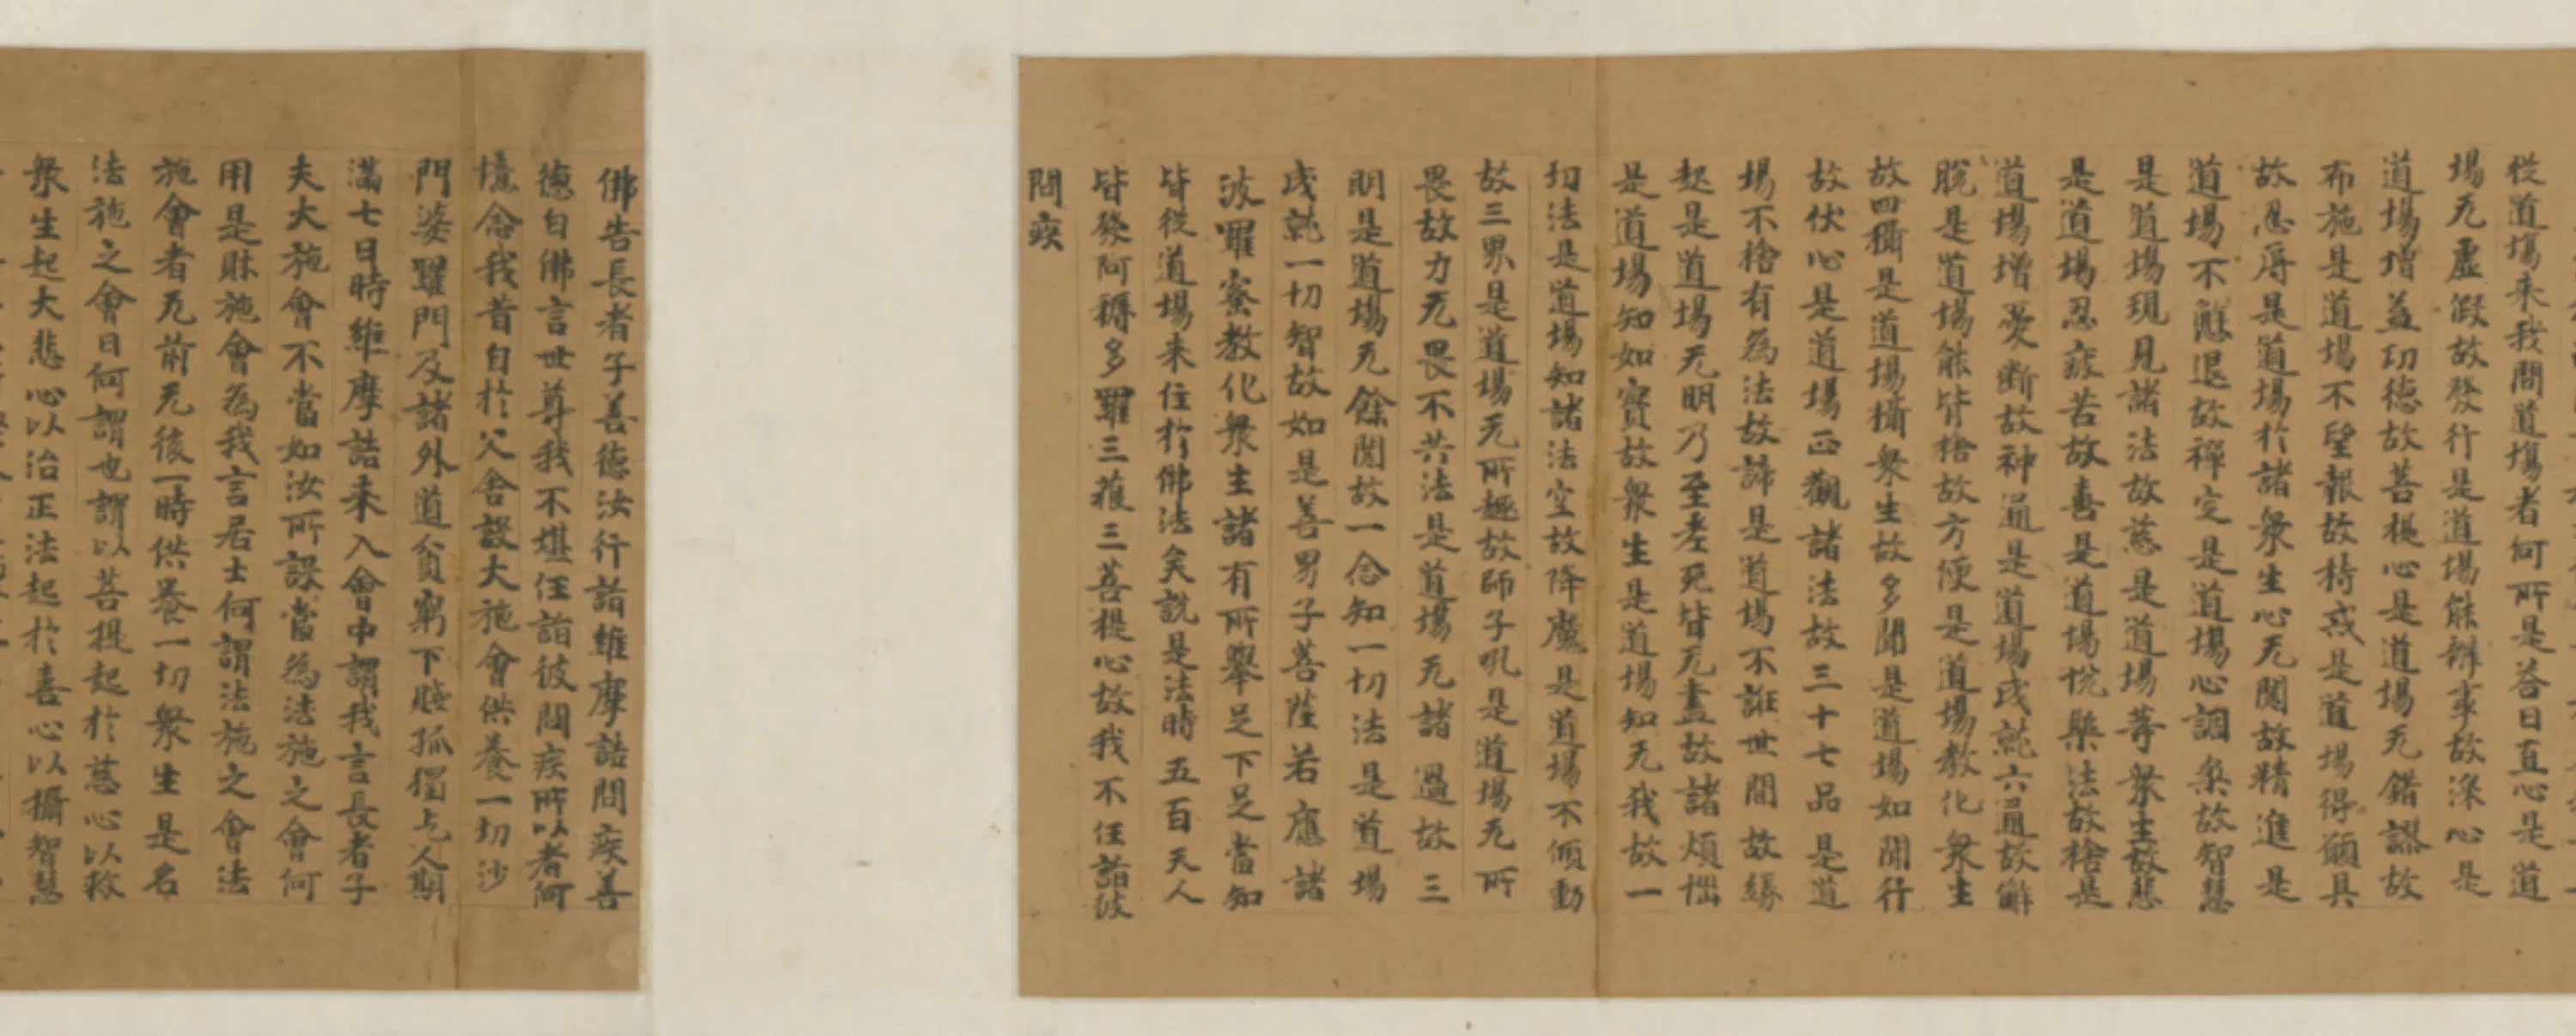 從道場来我問道場者何所是荅曰直心是道
場无虛假故發行是道場能辦事故深心是
道場增益功德故菩提心是道場无錯謬故
布施是道場不望報故持戒是道場得願具
故忍辱是道場於諸衆生心无閡故精進是
道場不懈退故禪定是道場心調柔故智慧
是道場現見諸法故慈是道場等衆生故悲
是道場忍疲苦故喜是道場悅樂法故捨是
道場增愛断故神通是道場成就六通故解
脫是道場能背捨故方便是道場教化衆生
故四攝是道場攝衆生故多聞是道場如聞行
故伏心是道場正觀諸法故三十七品是道
場不捨有為法故諦是道場不誑世間故緣
起是道場无明乃至老死皆无盡故諸煩惱
是道場知如實故衆生是道場知无我故一
切法是道場知諸法空故降魔是道場不傾動
故三界是道場无所趣故師子吼是道場无所
畏故力无畏不共法是道場无諸過故三
明是道場无餘閡故一念知一切法是道場
成就一切智故如是善男子菩薩若應諸
波羅蜜教化衆生諸有所舉足下足當知
皆從道場来住於佛法矣說是法時五百天人
皆發阿耨多羅三藐三菩提心故我不任詣彼
問疾
佛告長者子善德汝行詣維摩詰問疾善
德白佛言世尊我不堪任詣彼問疾所以者何
憶念我昔自於父舍設大施會供養一切沙
門婆羅門及諸外道貧窮下賤孤獨乞人期
滿七日時維摩詰来入會中謂我言長者子
夫大施會不當如汝所設當為法施之會何
用是財施會為我言居士何謂法施之會法
施會者无前无後一時供養一切衆生是名
法施之會曰何謂也謂以菩提起於慈心以救
衆生起大悲心以治正法起於喜心以攝智慧